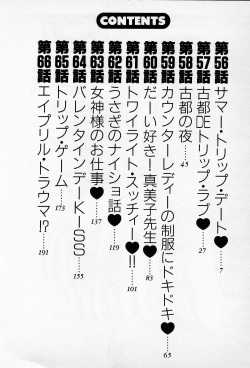 CONTENTS
第56話 サマー・トリップ・デート♥ 7
第57話 古都DEトリップ・ラブ♥ 27
第58話 古都の夜 45
第59話 カウンターレディーの制服にドキドキ♥ 65
第60話 だーい好きー真美子先生♥ 83
第61話 トワイライト・スッチィー♥!! 101
第62話 うさぎのナイショ話♥ 119
第63話 女神様のお仕事♥ 137
第64話 バレンタインデーKISS 155
第65話 トリップ・ゲーム 173
第66話 エイプリル・トラウマ!? 191